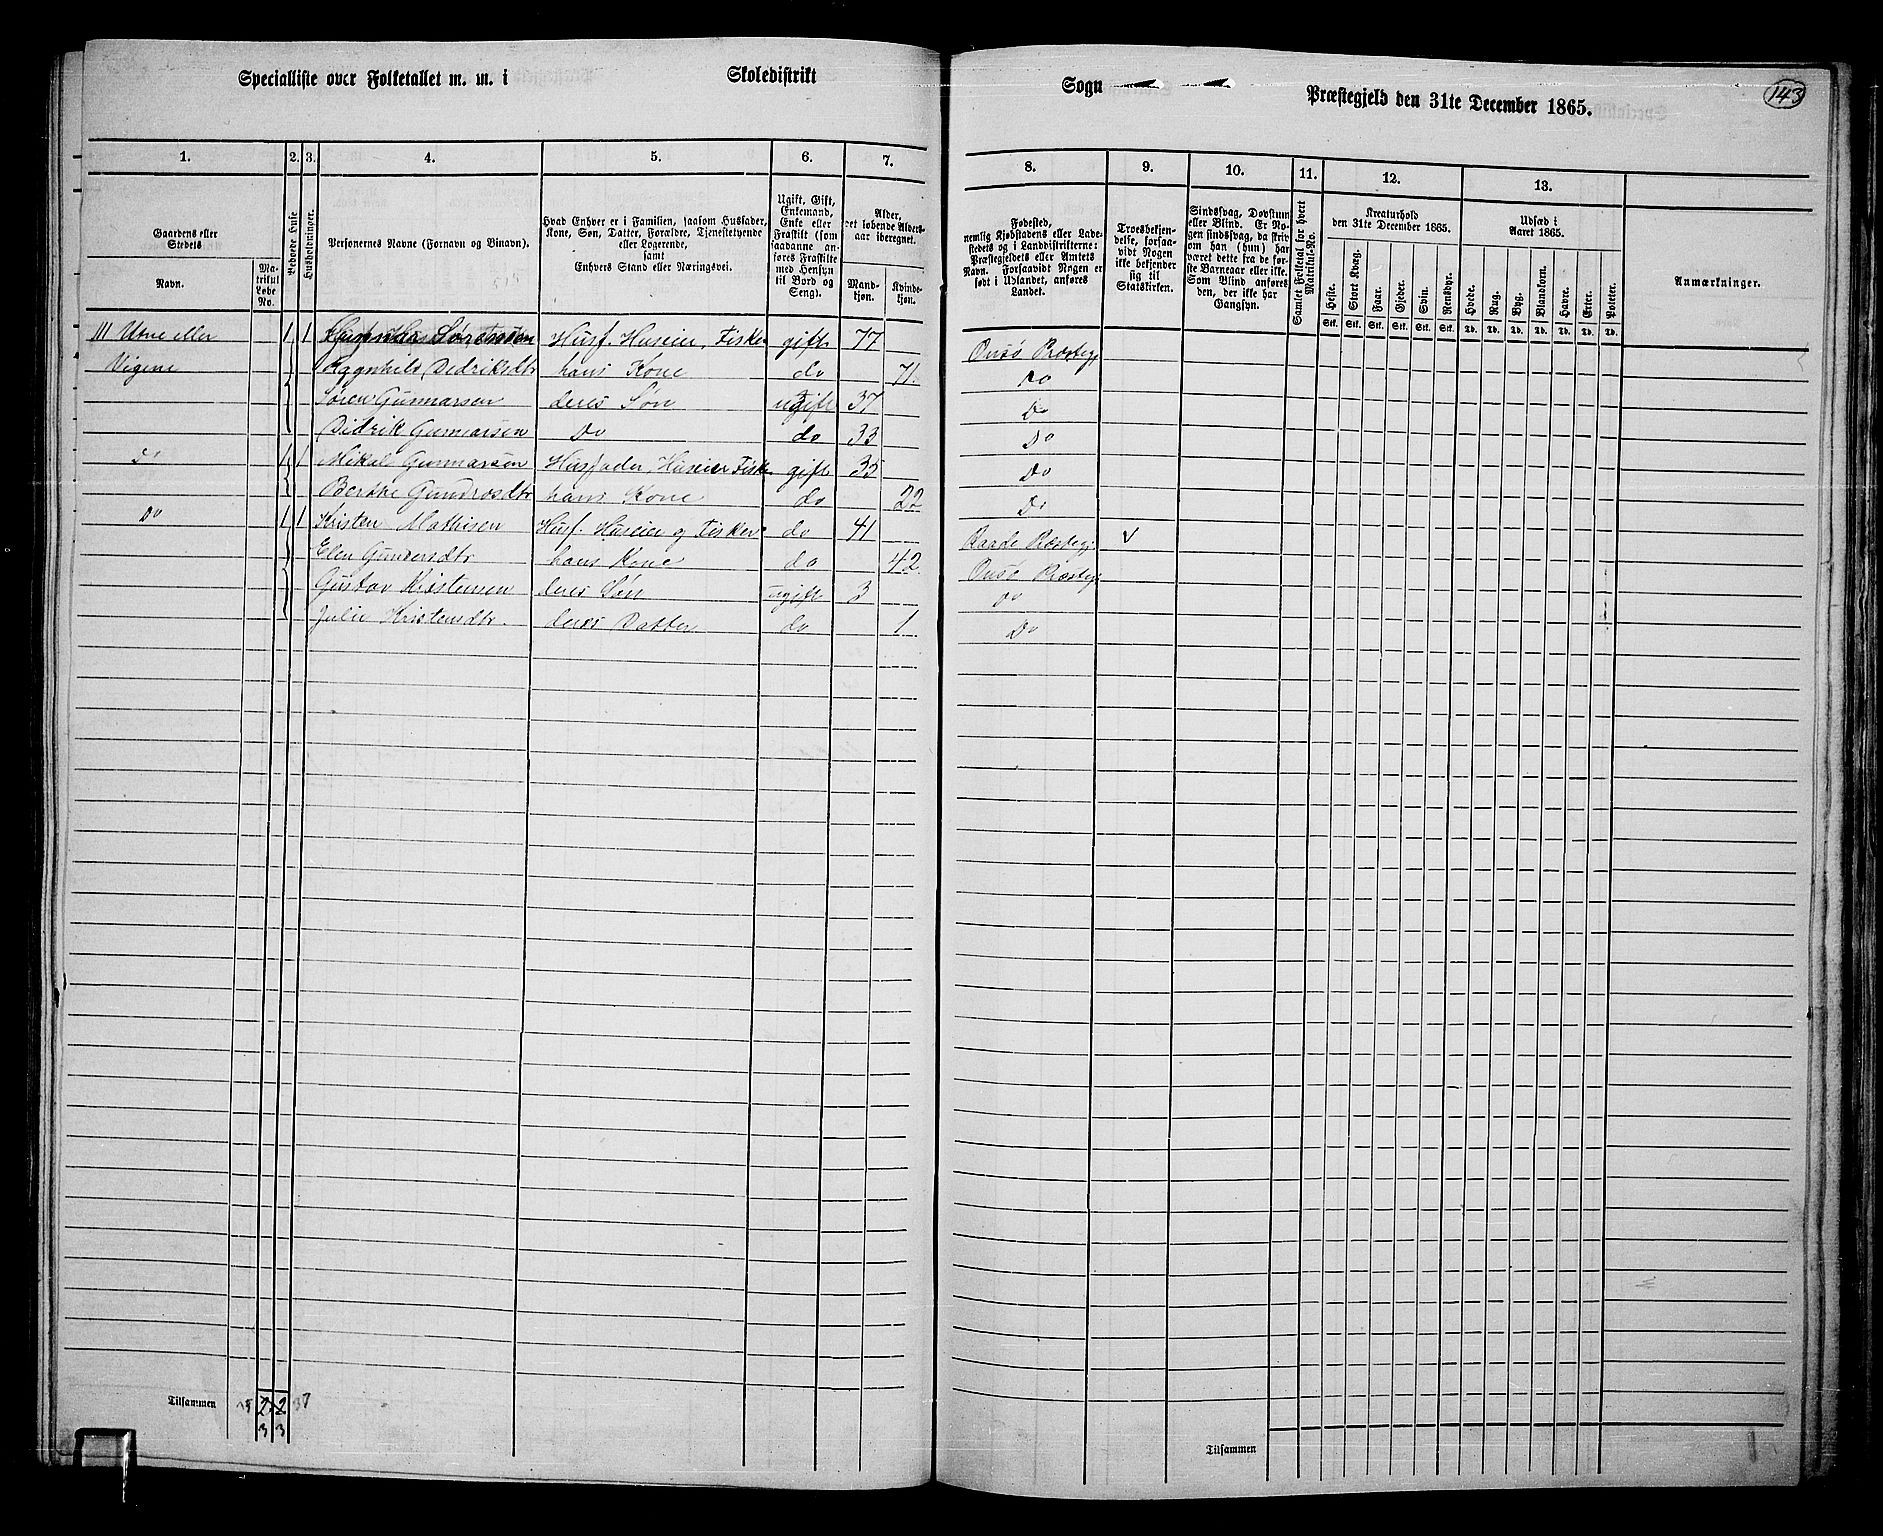 Specialliste over Folketallet m. m. i Skoledistrikt Sogn Præstegjeld den 31te December 1865.
143
1. 2. 3. 4. 5. 6. 7. 8. 9. 10. 11. 12. 13.
Gaardens eller Stedets
Navn.
Matrikul Løbe No.
Beboede Huse
Husholdninger.
Personernes Navne (Fornavn og Binavn).
Hvad Enhver er i Familien, saasom Husfader, Kone, Søn, Datter, Forældre, Tjenestetyende eller Logerende,
samt
Enhvers Stand eller Næringsvei.
Ugift, Gift, Enkemand, Enke eller Fraskilt (som saadanne anføres Fraskilte med Hensyn til Bord og Seng).
Alder, det løbende Alders-aar iberegnet.
Mandkjøn.
Kvindekjøn.
Fødested, nemlig Kjøbstadens eller Ladestedets og i Landdistrikterne: Præstegjeldets eller Amtets Navn. Forsaavidt Nogen er født i Udlandet, anføres Landet.
Troesbekjendelse, forsaavidt Nogen ikke bekjender sig til Statskirken.
Sindssvag, Døvstum eller Blind. Er Nogen sindssvag, da skriv om han (hun) har været dette fra de første Barneaar eller ikke. Som Blind anføres den, der ikke har Gangsyn.
Samlet Folketal for hvert Matrikuls-No.
Kreaturhold den 31te December 1865.
Heste. Stort Kvæg. Faar. Gjeder. Svin. Rensdyr.
Stk. Stk. Stk. Stk. Stk. Stk.
Udsæd i Aaret 1865.
Hvede. Rug. Byg. Blandkorn. Havre. Erter. Poteter.
Td. Td. Td. Td. Td. Td. Td.
Anmærkninger.
eller 1 1 Gunnar Sørensen Husf. Huseier, Fisker gift 77 Onsø Præstegj
Vigene Ragnhild Didriksdtr hans Kone do 71. Do
Søren Gunnarsen deres Søn ugift 37 Do
Didrik Gunnarsen Do do 33 Do
Do 1 1 Mikal Gunnarsen Husfader, Huseier Fisk gift 35 Do
Berthe hans Kone do 22 Do
Do 1 1 Kristen Mathisen Husf. Huseier og Fisker do 41 Raade Præstegj
Elen Gundersdtr hans Kone do 42. Onsø Præstegj
Gustav Kristensen deres Søn ugift 3 Do
Julie Kristensdtr. deres Datter do 1 Do
Tilsammen 2 2 37
3 3
Tilsammen